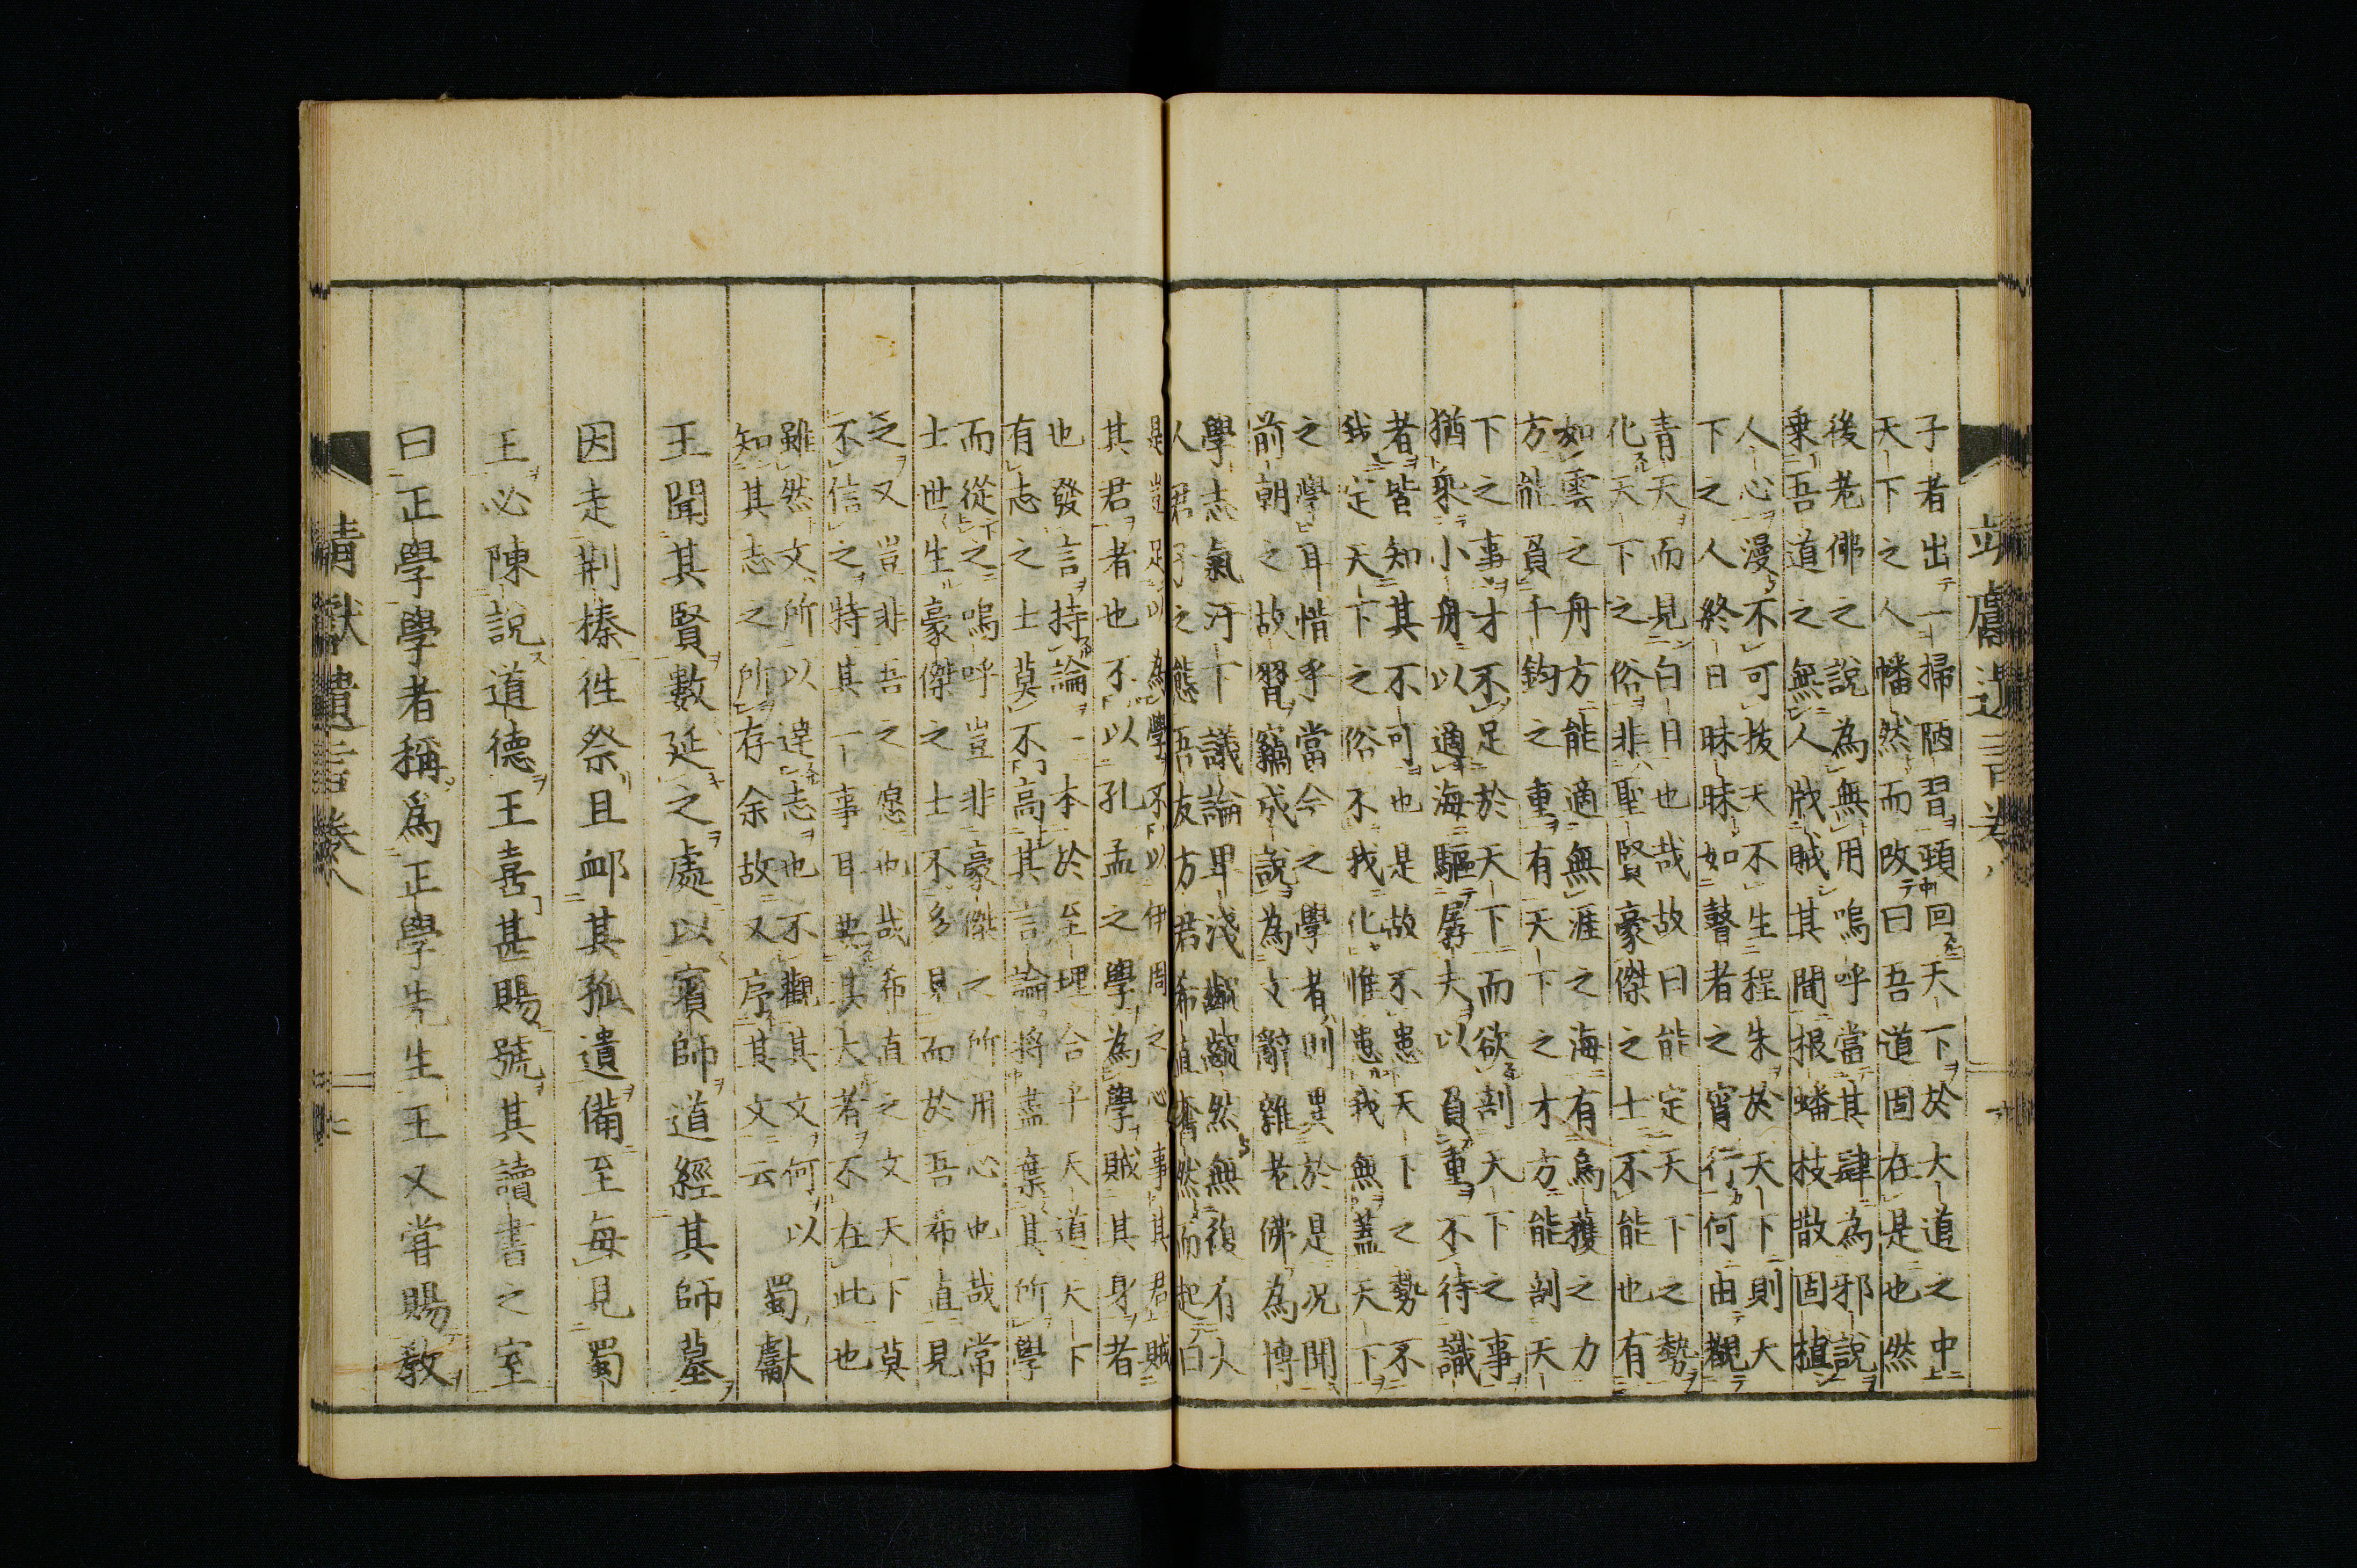 子者出一掃陋習頸回天下於大道之中
天下之人幡然而改曰吾道固在是也然
後老佛之說為無用嗚呼當其肆為邪說
乗吾道之無人戕賊其間根蟠枝散固植
人心漫不可拔天不生程朱於天下則天
下之人終日昧昧如瞽者之宵行何由觀
青天而見白日也哉故曰能定天下之勢
化天下之俗非聖賢豪傑之士不能也有
如雲之舟方能適無涯之海有烏獲之力
方能負千鈞之重有天下之才方能剖天
下之事才不足於天下而欲剖天下之事
猶乘小舟以適海驅孱夫以負重不待識
者皆知其不可也是故不患天下之勢不
我定天下之俗不我化惟患我無蓋天下
之學耳惜乎當今之學者則異於是況聞
前朝之故習竊成說為文辭雜老佛為博
學志氣汙下議論卑淺齷齪然無復有大
人君子之態吾友方君希直奮然而起曰
是豈足以為學不以伊周之心事其君賊
其君者也不以孔孟之學為學賊其身者
也發言持論一本於至理合乎天道天下
有志之士莫不高其言論將盡棄其所學
而從之嗚呼豈非豪傑之所用心也哉常
士世生豪傑之士不多見而於吾希直見
之又豈非吾之慰也哉希直之文天下莫
不信之特其一事耳其大者不在此也
雖然文所以達志也不觀其文何以
知其志之所存余故又序其文云
蜀獻
王聞其賢數延之處以賓師道經其師墓
因走荆榛徃祭且卹其孤遺備至每見蜀
王必陳說道德王喜甚賜號其讀書之室
曰正學學者稱為正學先生王又甞賜教
靖獻遺言卷八